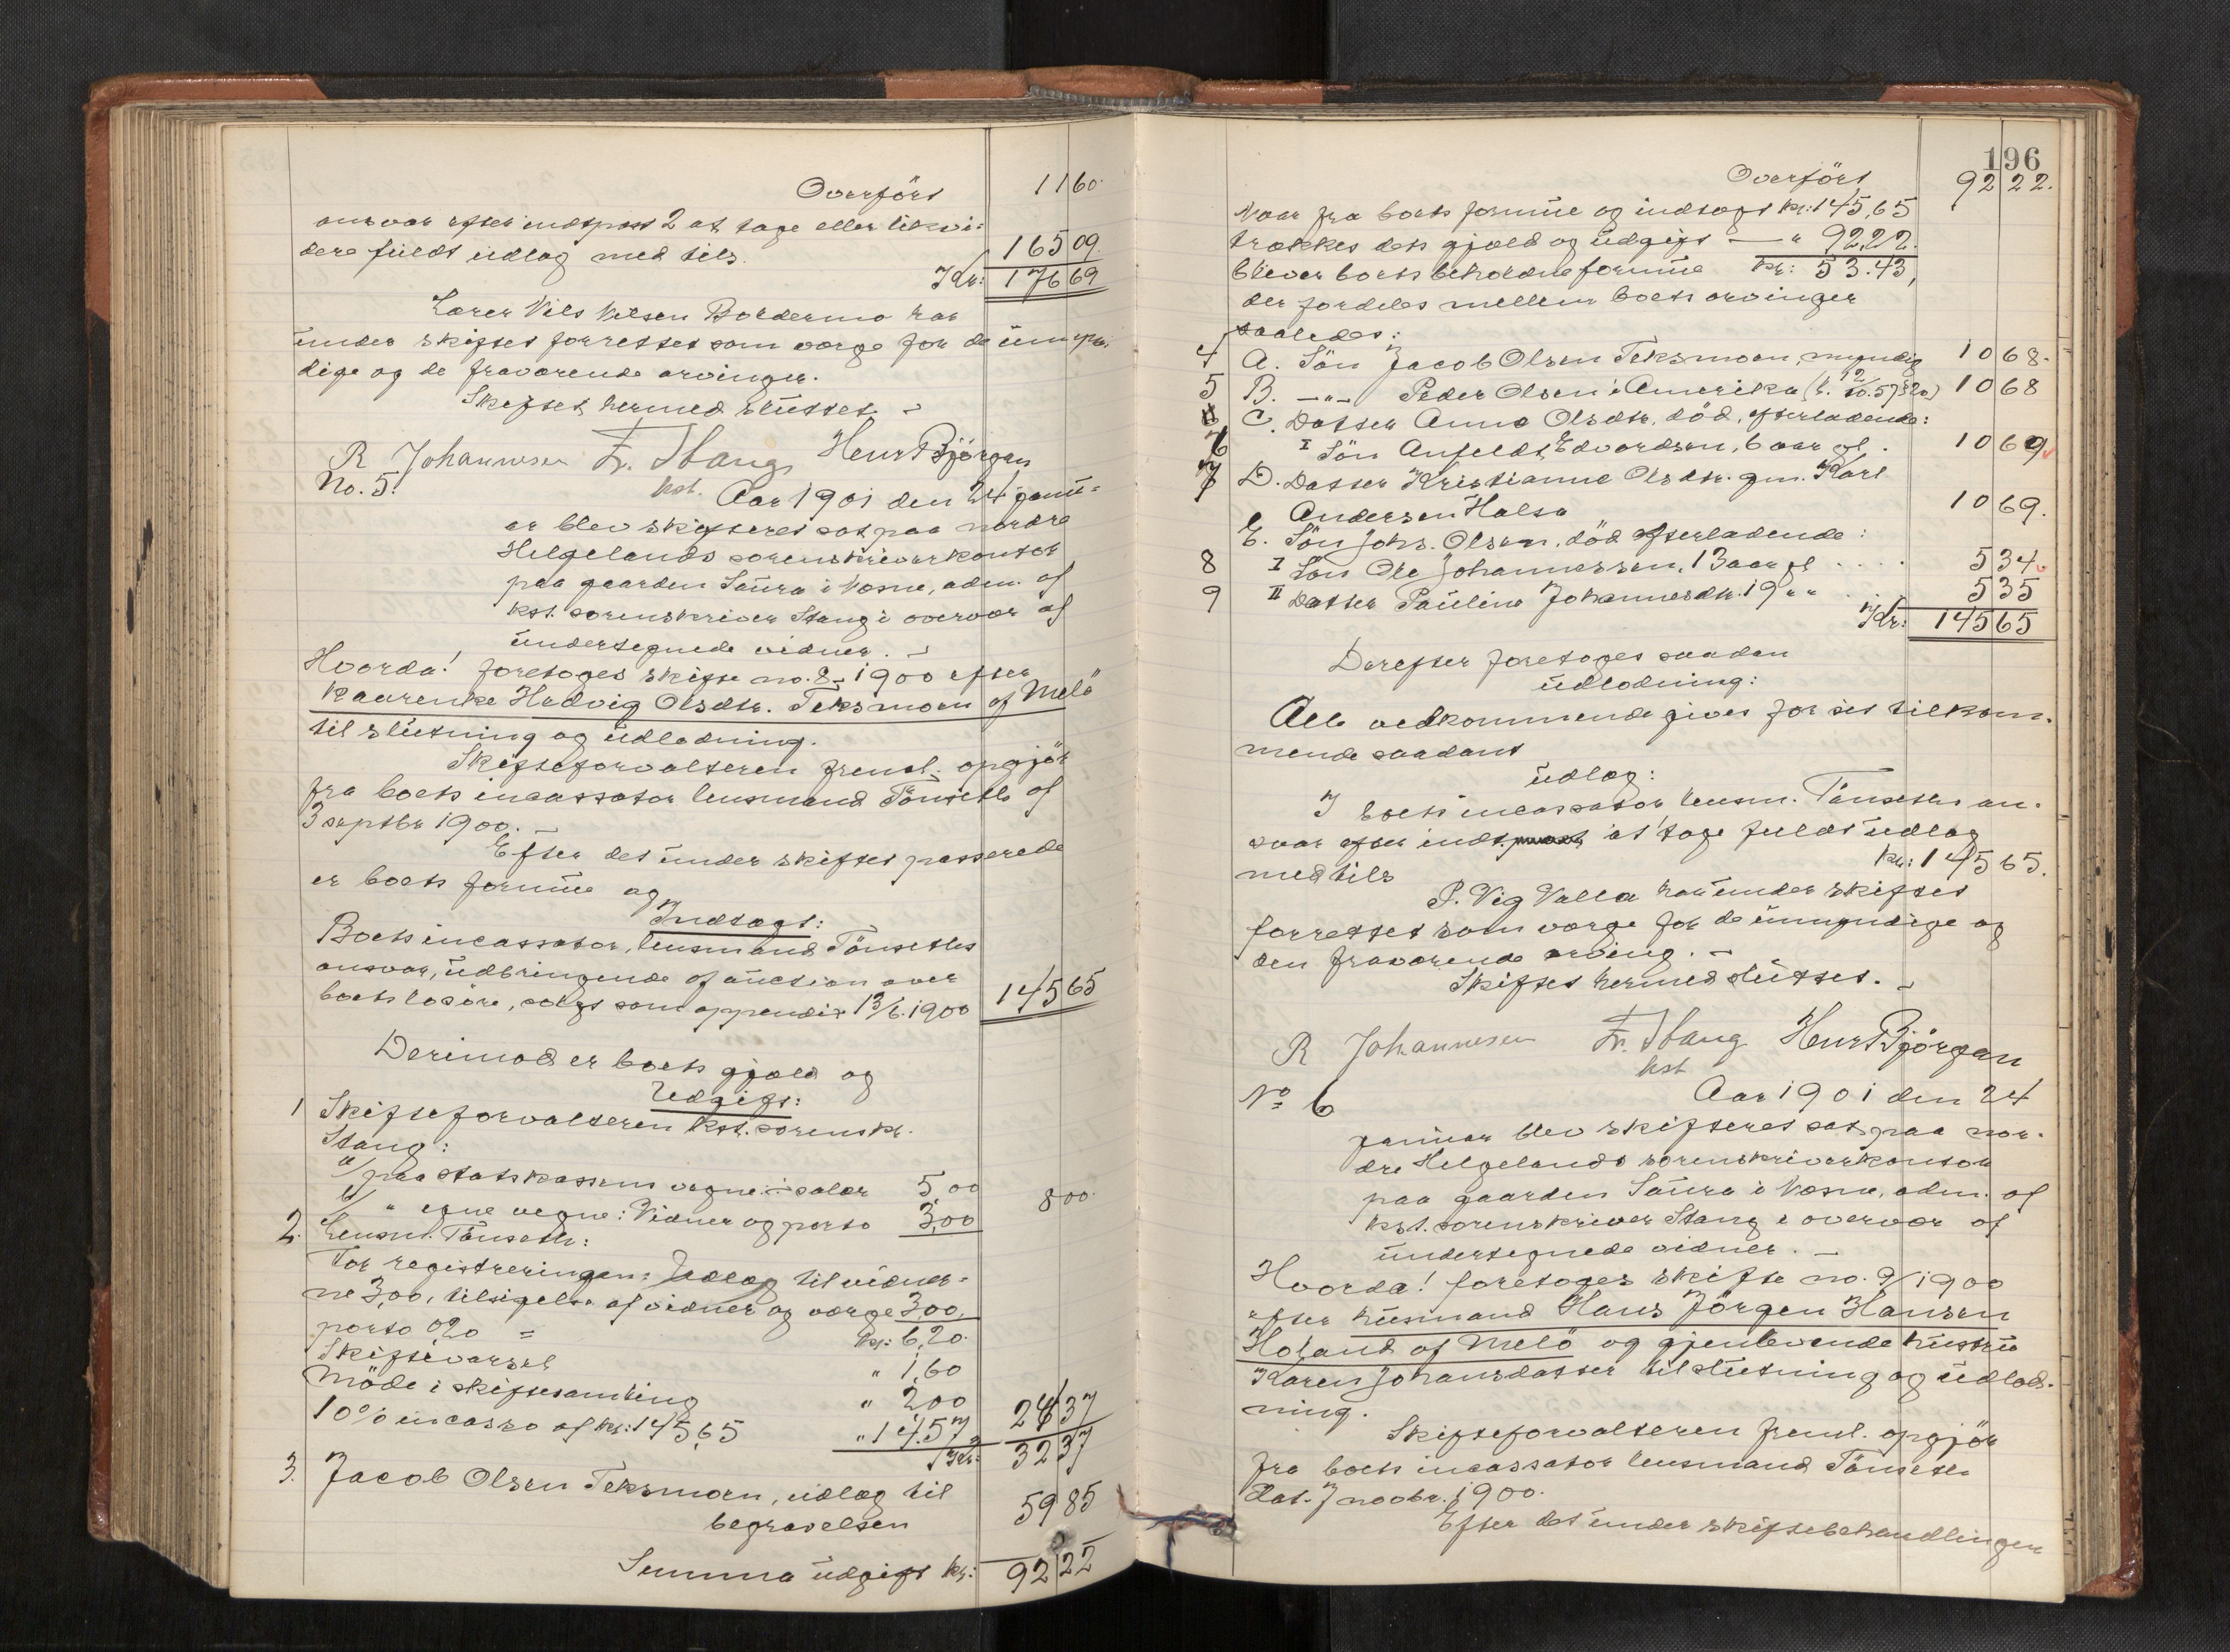 Overført 1160.
ansvar efter indtpost 2 at tage eller likvi-
dere füldt üdlæg med tils. 16509.
Kr: 17669
Lærer Nils Nilsen Boldermo har
ünder skiftet forrettet som værge for de ümyn-
dige og de fraværende arvinger.
Skiftet hermed slüttet. –
R Johannesen Fr. Stang HenrBjörgan
kst.
No. 5. Aar 1901 den 24 janü-
ar blev skifteret sat paa nordre
Helgelands sorenskriverkontor
paa gaarden Saura i Næsne, adm. af
kst. sorenskriver Stang i overvær af
ündertegnede vidner. –
Hvorda! foretoges skifte no. 8-1900 efter
Kaarenke Hedvig Olsdtr. Teksmoen af Melö
til slütning og üdlodning.
Skifteforvalteren freml. opgjör
fra boets incassator lensmand Tönseth af
3 septbr 1900. –
Efter det ünder skiftet passerede
er boets formüe og
Indtægt:
Boets incassator, lensmand Tönseths
ansvar, üdbringende af aüction over
boets lösöre, solgt som appendix 13/6.1900 14565
Derimod er boets gjæld og
Udgift:
1 Skifteforvalteren kst. sorenskr.
Stang:
a/ paa statskassens vegne: salær 5,00
b/ " egne vegne: Vidner og porto 3,00 800.
2. Lensm. Tönseth:
For registreringen: Udlæg til vidner-
ne 3,00, tilsigelse af vidner og værge 3,00,
porto 0,20 = kr: 6,20.
Skiftevarsel " 1,60
Möde i skiftesamling " 2,00
10% incasso af kr: 145,65 " 14.57 2437
Kr: 3237
3. Jacob Olsen Teksmoen, üdlæg til
begravelsen 5985
Summa üdgift kr: 9222
196
Overfört 9222.
Naar fra boets formüe og indtægt kr: 145,65
trækkes dets gjæld og üdgift — " 92,22.
bliver boets beholdne formüe kr: 53.43,
der fordeles mellem boets arvinger
saaledes:
4 A. Sön Jacob Olsen Teksmoen, myndig 1068.
5 B. —"— Peder Olsen i Amerika 1068
C. Datter Anna Olsdtr. död, efterladende:
6 I Sön Anfeldt Edvardsen, 6 aar gl. 1069
7 D. Datter Kristianne Olsdtr. gm. Karl
Andersen Halsa 1069.
E. Sön Johs. Olsen, död efterladende:
8 I Sön Ole Johannessen, 13 aar gl .... 534
9 II Datter Pauline Johannesdtr. 19 " " .. 535
Kr: 14565
Derefter foretoges saadan
üdlodning:
Alle vedkommende gives for sit tilkom-
mende saadant
üdlæg:
I boets incassator lensm. Tönseths an-
svar efter indt. at tage füldt üdlæg
med tils kr: 14565.
P. Vig Valla har ünder skiftet
forrettet som værge for de ümyndige og
den fraværende arving. –
Skiftet hermed slüttet. –
R Johannesen Fr. Stang HenrBjörgan
kst
No 6 Aar 1901 den 24
januar blev skifteret sat paa nor-
dre Helgelands sorenskriverkontor
paa gaarden Saura i Næsne, adm. af
kst. sorenskriver Stang i overvær af
ündertegnede vidner. –
Hvorda! foretoges skifte no. 9/1900
efter hüsmand Hans Jörgen Hansen
Holand af Melö og gjenlevende hüstrü
Karen Johansdatter til slütning og üdlod-
ning.
Skifteforvalteren freml. opgjör
fra boets incassator lensmand Tönseth
dat. 7 novbr. 1900.
Efter det ünder skiftebehandlingen